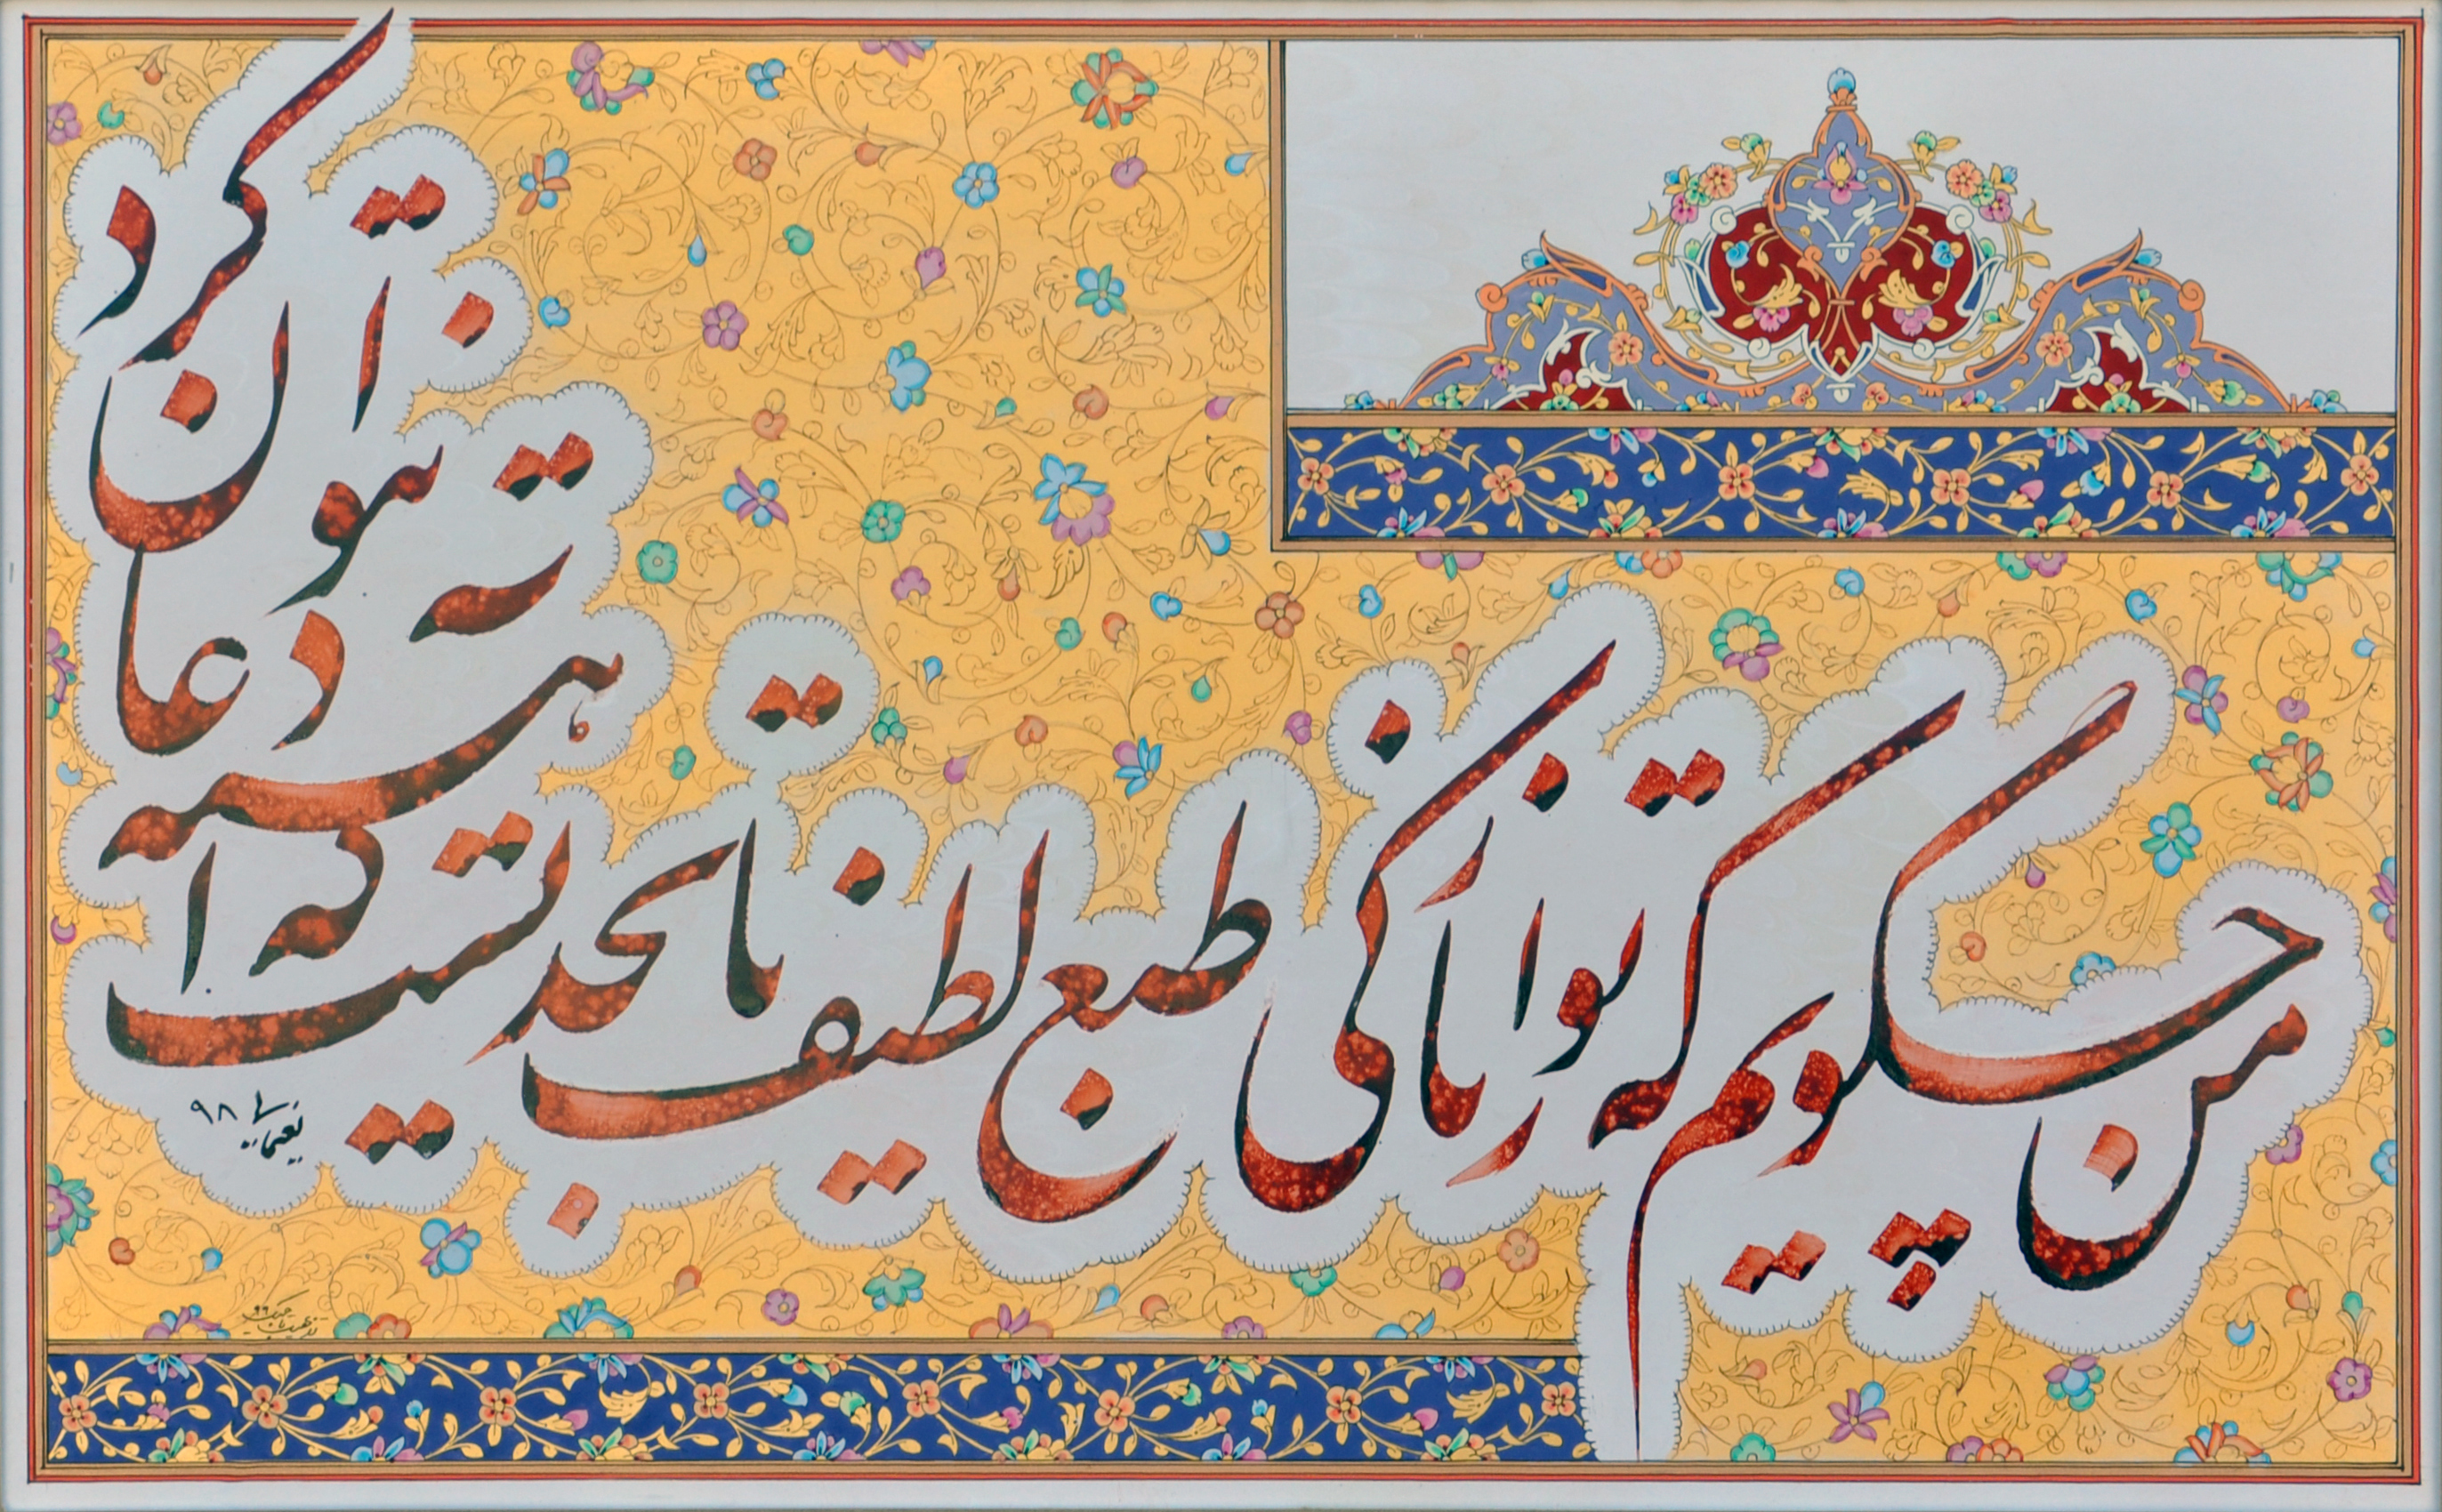 من چگویم که تو را نازکی طبع لطیف
تا بحدیست که آهسته دعا نتوان کرد
۹۸